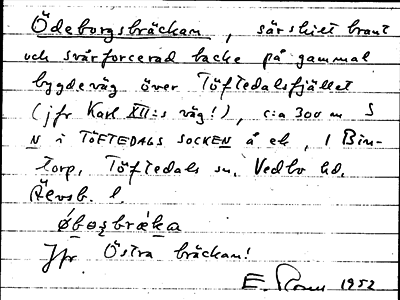 Ödeborgsbräckan, särskilt brant
och svårforcerad backe på gammal
bygdeväg över Töftedalsfjället
(jfr Karl XII:s väg!), c:a 300 m S
N i TÖFTEDALS SOCKEN å ek, 1 Bin-
torp, Töftedals sn, Vedbo hd,
Älvsb. l.
Jfr Östra bräckan!
E. 1952